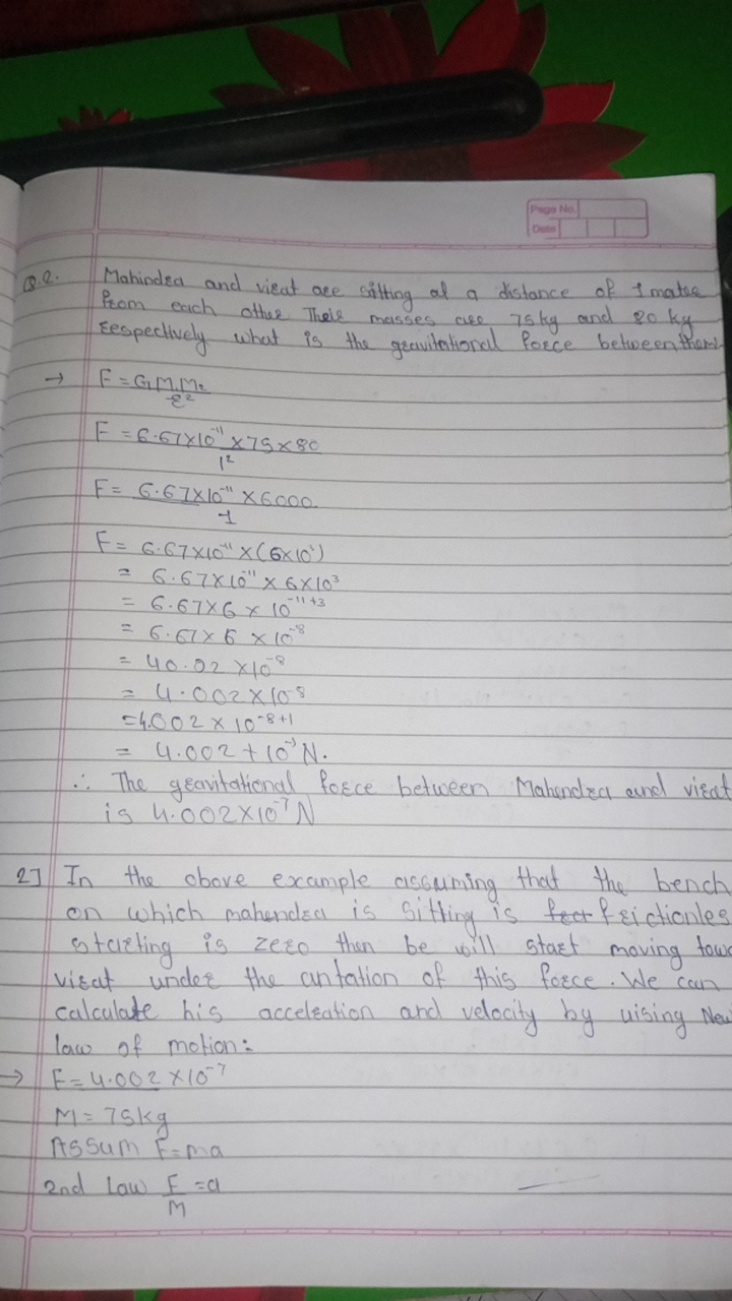 Page No.
Date
Q.2. Mahindra and virat are sitting at a distance of 1 matre
from each other Their masses are 75kg and 80 kg
respectively what is the gravitational force between them.
→ F = G M₁ M₂ / r²
F = 6.67×10⁻¹¹ ×75×80 / 1²
F = 6.67×10⁻¹¹ ×6000 / 1
F = 6.67×10⁻¹¹ ×(6×10³)
= 6.67×10⁻¹¹ × 6×10³
= 6.67×6 × 10⁻¹¹⁺³
= 6.67×6 ×10⁻⁸
= 40.02 ×10⁻⁸
= 4.002×10⁻⁸
=4.002 × 10⁻⁸⁺¹
= 4.002 + 10⁻⁷ N.
∴ The gravitational force between Mahendra and virat
is 4.002×10⁻⁷ N
2] In the above example assuming that the bench
on which mahendra is Sitting is frictionles
starting is zero then be will start moving towa
virat under the antation of this force. We can
calculate his accelration and velocity by uising New
law of motion:
→ F = 4.002 ×10⁻⁷
M = 75kg
Assum F=ma
2nd Law F/M = a